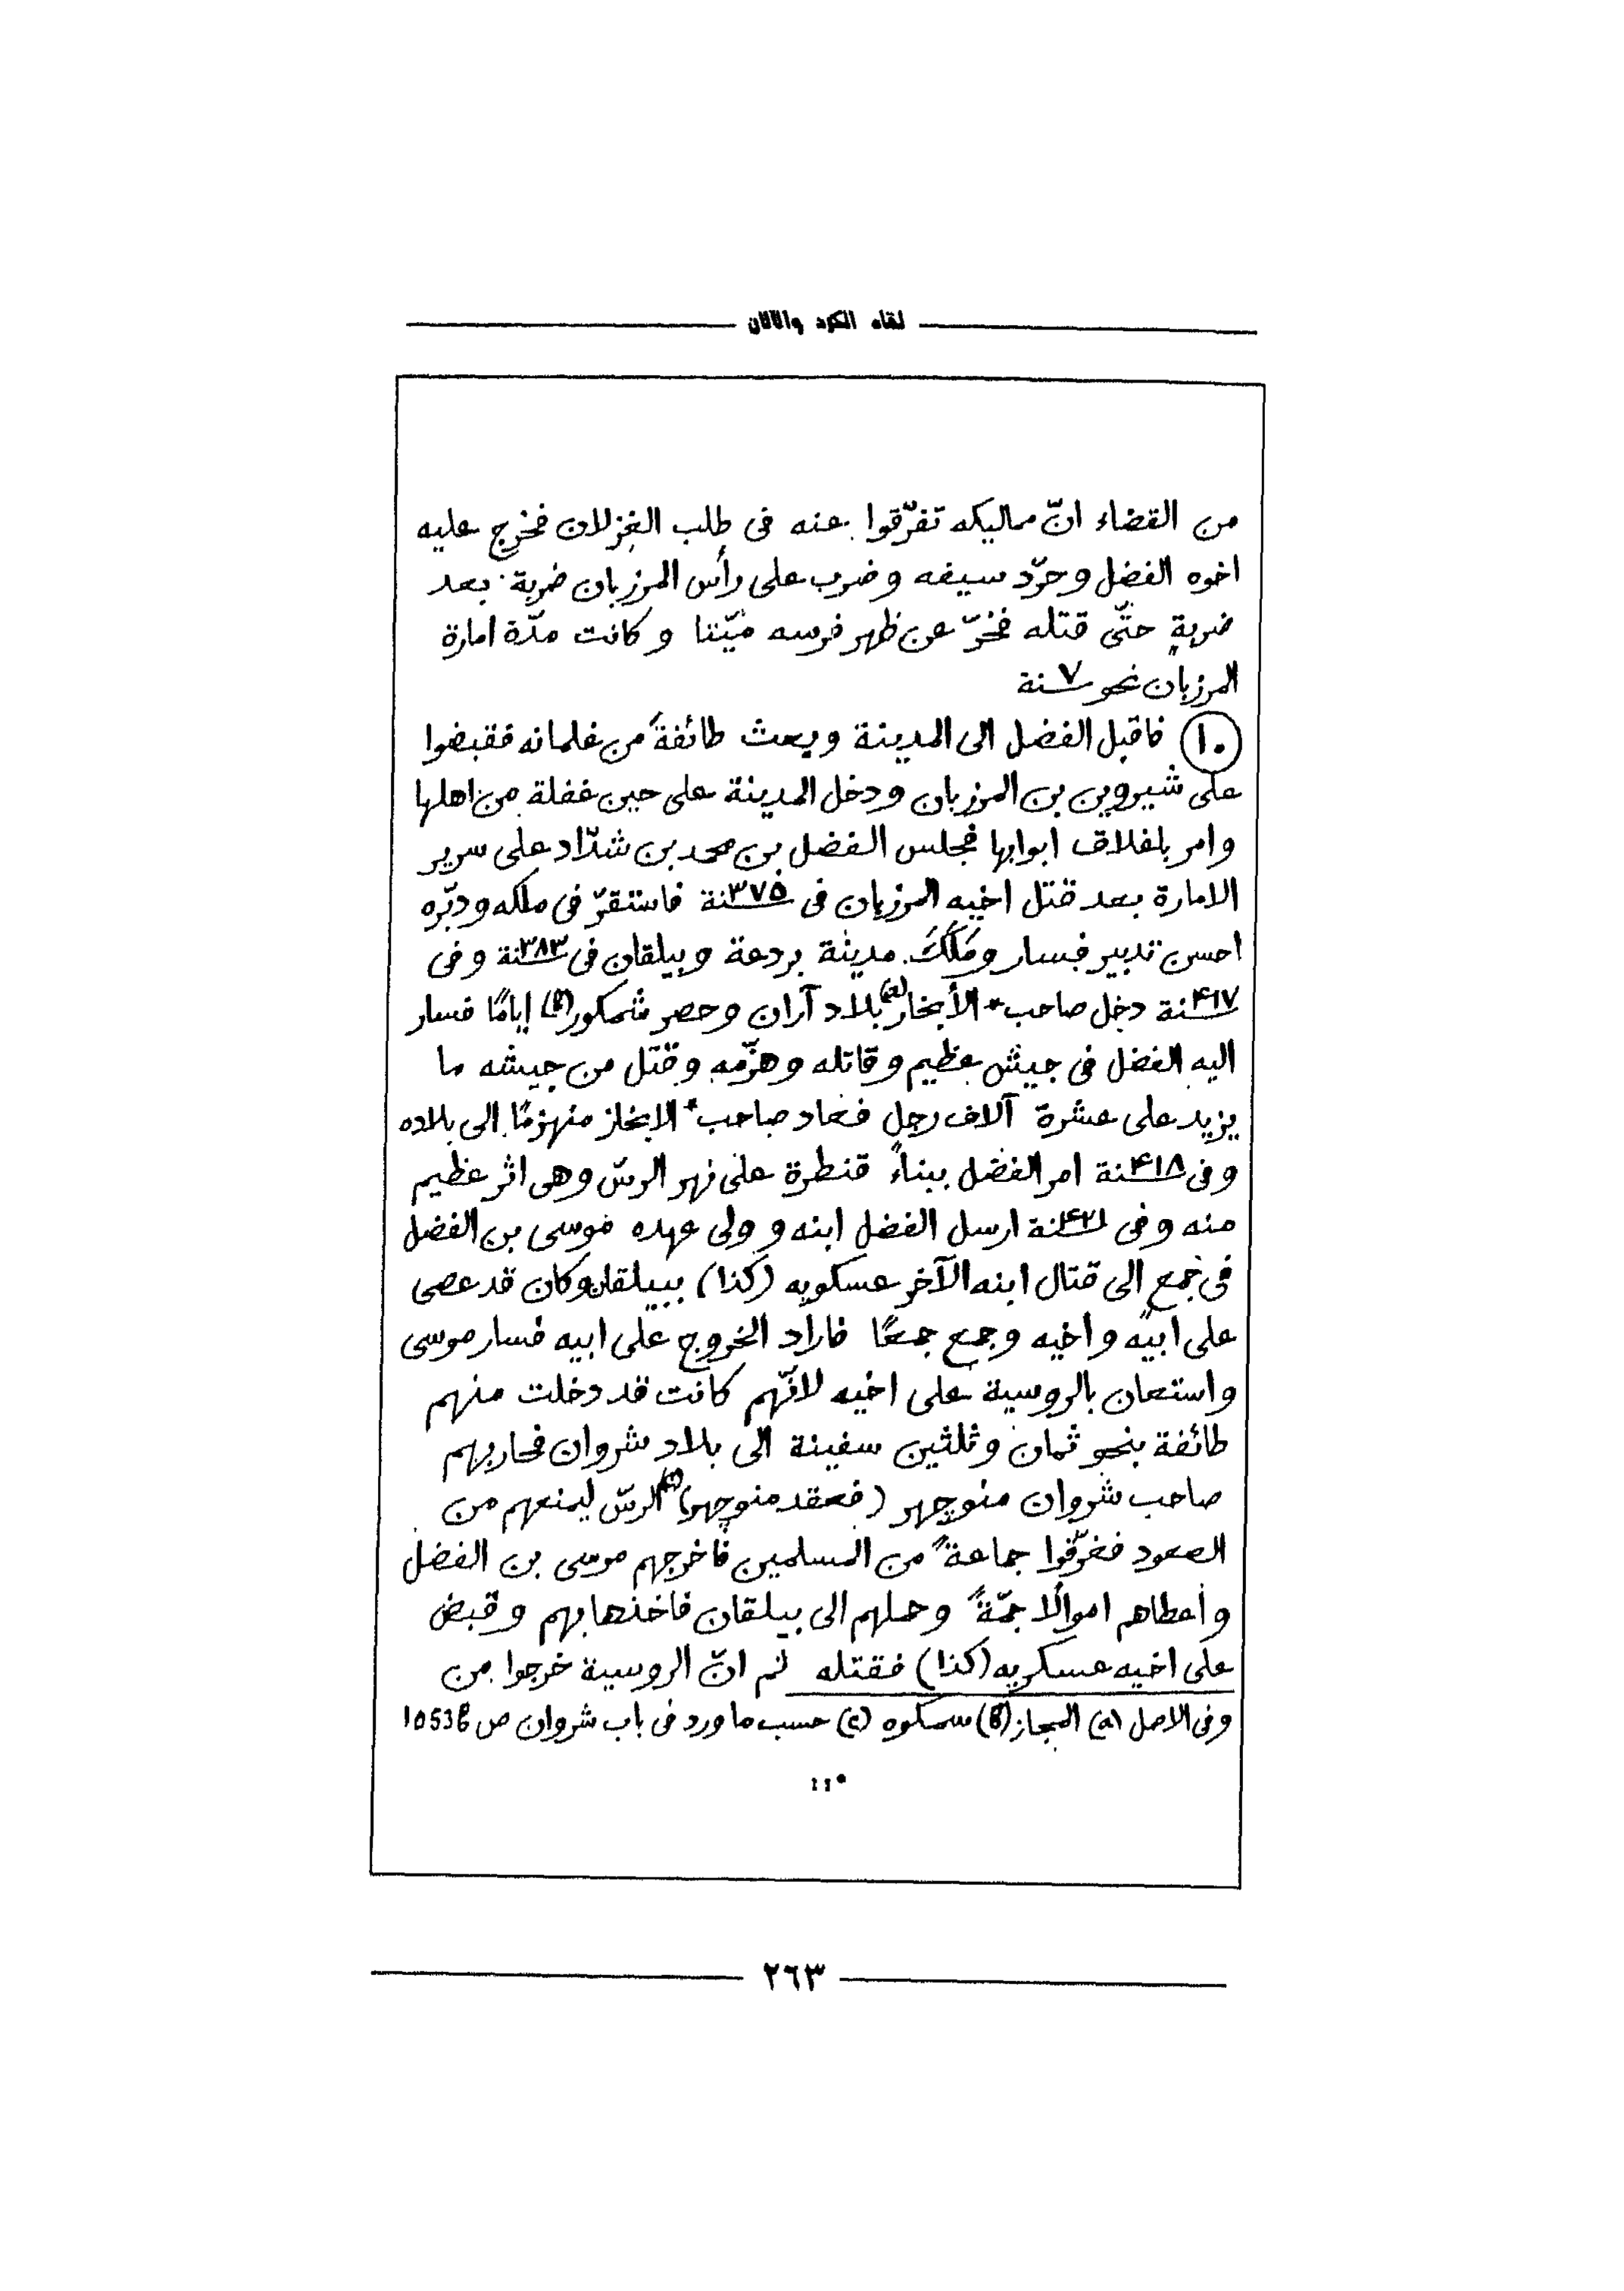 لقاء الكرد واللان
من القضاء انّ مماليكه تفرّقوا عنه فى طلب الغزلان فخرج عليه
اخوه الفضل وجرّد سيفه وضرب على رأس المرزبان ضربة بعد
ضربةٍ حتّى قتله فخرّ عن ظهر فرسه ميّتا وكانت مدّة امارة
المرزبان نحو ٧ سنة
(١٠) فاقبل الفضل الى المدينة وبعث طائفةً من غلمانه فقبضوا
على شيروين بن المرزبان ودخل المدينة على حين غفلة من اهلها
وامر باغلاق ابوابها فجلس الفضل بن محمد بن شدّاد على سرير
الامارة بعد قتل اخيه المرزبان فى سنة ٣٧٥ فاستقرّ فى ملكه ودبّره
احسن تدبير فسار ومَلَكَ مدينة بردعة وبيلقان فى سنة ٣٨٣ وفى
سنة ۴١٧ دخل صاحب * الأبخاز (a) بلاد آران وحصر شمكور (b) ايامًا فسار
اليه الفضل فى جيش عظيم وقاتله وهزّمه وقتل من جيشه ما
يزيد على عشرة آلاف رجل فعاد صاحب * الابخاز منهزمًا الى بلاده
وفى سنة ۴١٨ امر الفضل ببناءً قنطرة على نهر الرسّ وهى اثر عظيم
منه وفى سنة ۴٢١ ارسل الفضل ابنه وولى عهده موسى بن الفضل
فى جمع الى قتال ابنه الآخر عسكويه (كذا) ببيلقان وكان قد عصى
على ابيه واخيه وجمع جمعًا فاراد الخروج على ابيه فسار موسى
واستعان بالروسية على اخيه لانّهم كانت قد دخلت منهم
طائفة بنحو ثمان وثلثين سفينة الى بلاد شروان فحاربهم
صاحب شروان منوچهر (فعقد منوچهر) (c) الرسّ ليمنعهم من
الصعود فغرّقوا جماعةً من المسلمين فاخرجهم موسى بن الفضل
واعطاهم اموالًا جمّةً وحملهم الى بيلقان فاخذها بهم وقبض
على اخيه عسكريه (كذا) فقتله ثم انّ الروسية خرجوا من
وفى الاصل (a) البجاز (b) سمكوه (c) حسب ما ورد فى باب شروان ص 1053b
٢٦٣